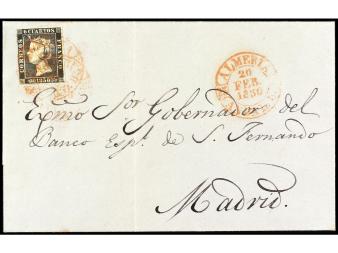 CORREOS
6 CUARTOS
FRANCO
1850
ALMERIA
20
FEB.
1850
Exmo Sor Gobernador del
Banco Espl. de S. Fernando
Madrid.